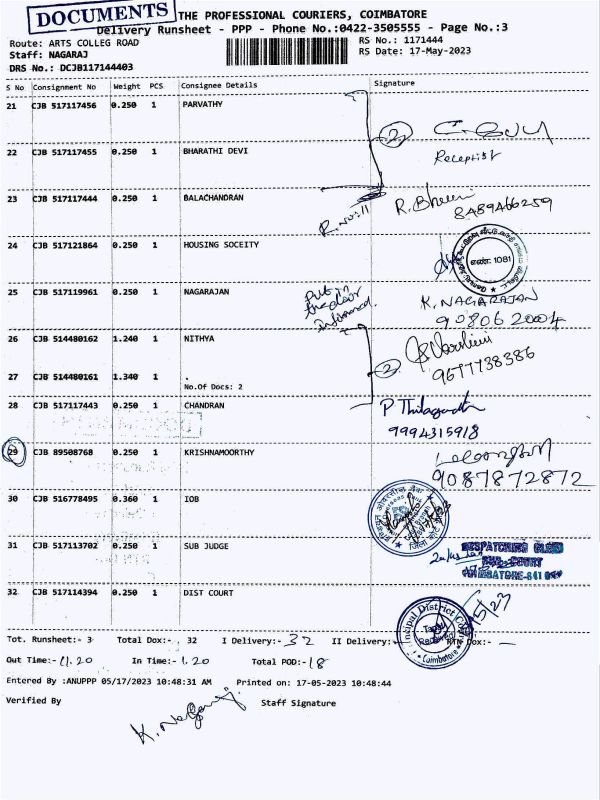 DOCUMENTS
THE PROFESSIONAL COURIERS, COIMBATORE
Delivery Runsheet - PPP - Phone No.:0422-3505555 - Page No.:3
Route: ARTS COLLEG ROAD
RS No.: 1171444
Staff: NAGARAJ
RS Date: 17-May-2023
DRS No.: DCJB117144403
S No Consignment No Weight PCS Consignee Details Signature
21 CJB 517117456 0.250 1 PARVATHY
2
Receptist
22 CJB 517117455 0.250 1 BHARATHI DEVI
23 CJB 517117444 0.250 1 BALACHANDRAN
R. No: 11
8489466259
24 CJB 517121864 0.250 1 HOUSING SOCEITY
எண்: 1081
25 CJB 517119961 0.250 1 NAGARAJAN
Put in
the door
informed.
K. NAGARAJAN
26 CJB 514480162 1.240 1 NITHYA
2
9677738386
27 CJB 514480161 1.340 1 .
No.Of Docs: 2
28 CJB 517117443 0.250 1 CHANDRAN
9994315918
29 CJB 89508768 0.250 1 KRISHNAMOORTHY
9087872872
30 CJB 516778495 0.360 1 IOB
31 CJB 517113702 0.250 1 SUB JUDGE
DESPATCHING CLERK
SUB-COURT
COIMBATORE-641 018
32 CJB 517114394 0.250 1 DIST COURT
Principal District Court
Coimbatore
Tot. Runsheet:- 3 Total Dox:- 32 I Delivery:- 32 II Delivery:- RTN Dox:- -
Out Time:- 11.20 In Time:- 1.20 Total POD:- 18
Entered By :ANUPPP 05/17/2023 10:48:31 AM Printed on: 17-05-2023 10:48:44
Verified By Staff Signature
K. Nagaraj